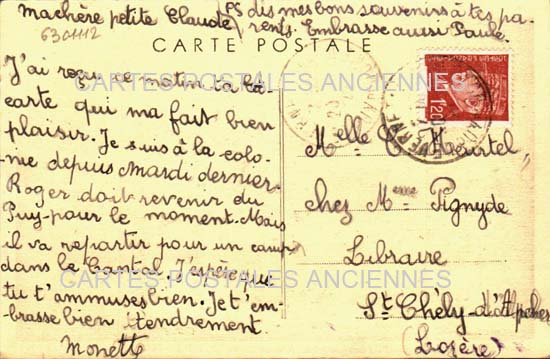 Ma chère petite Claude PS dis mes bons souvenirs à tes pa-
rents. Embrasse aussi Paule.
6301112
CARTE POSTALE
J'ai reçu ce matin ta
carte qui ma fait bien
plaisir. Je suis à la colo-
nie depuis mardi dernier.
Roger doit revenir du
Puy pour le moment. Mais
il va repartir pour un camp
dans le Cantal. J'espère que
tu t'ammuses bien. Je t'em-
brasse bien tendrement
Monett
1F20
Melle C.
chez Mme Pignyde
Libraire
St Chély-d'Apcher
(Lozère)
CARTES POSTALES ANCIENNES
CARTES POSTALES ANCIENNES